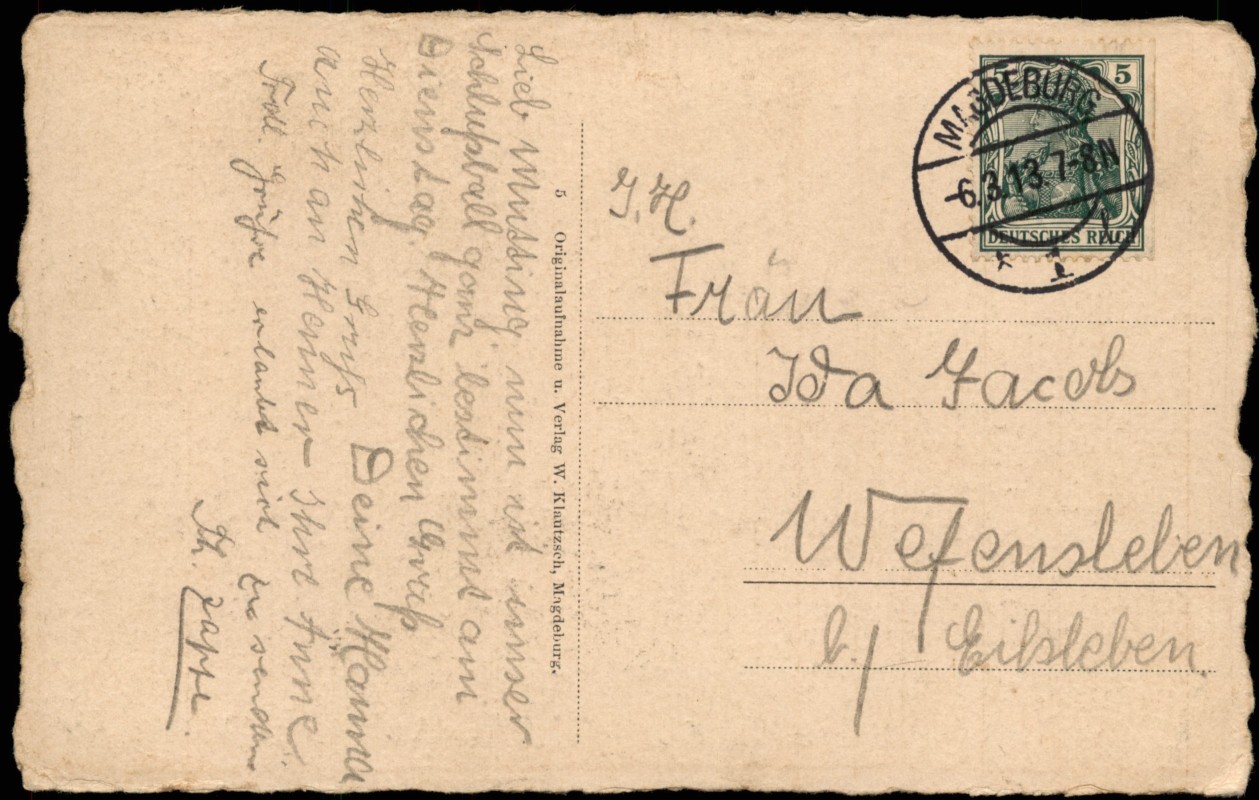 Lieb Mutting nun ist immer
Schlußball ganz bestimmt am
Dienstag. Herzlichen Gruß
Deine Hanna
Herzlichen Gruß
auch an Ihre Anne.
Frdl. Grüße erlaubt sich zu senden
Th.
5 Originalaufnahme u. Verlag W. Klautzsch, Magdeburg.
MAGDEBURG
-6.3.13.7-8N
* 1 l
5
DEUTSCHES REICH
J. H.
Frau
Ida Jacobs
Wefensleben
b./ Eilsleben.